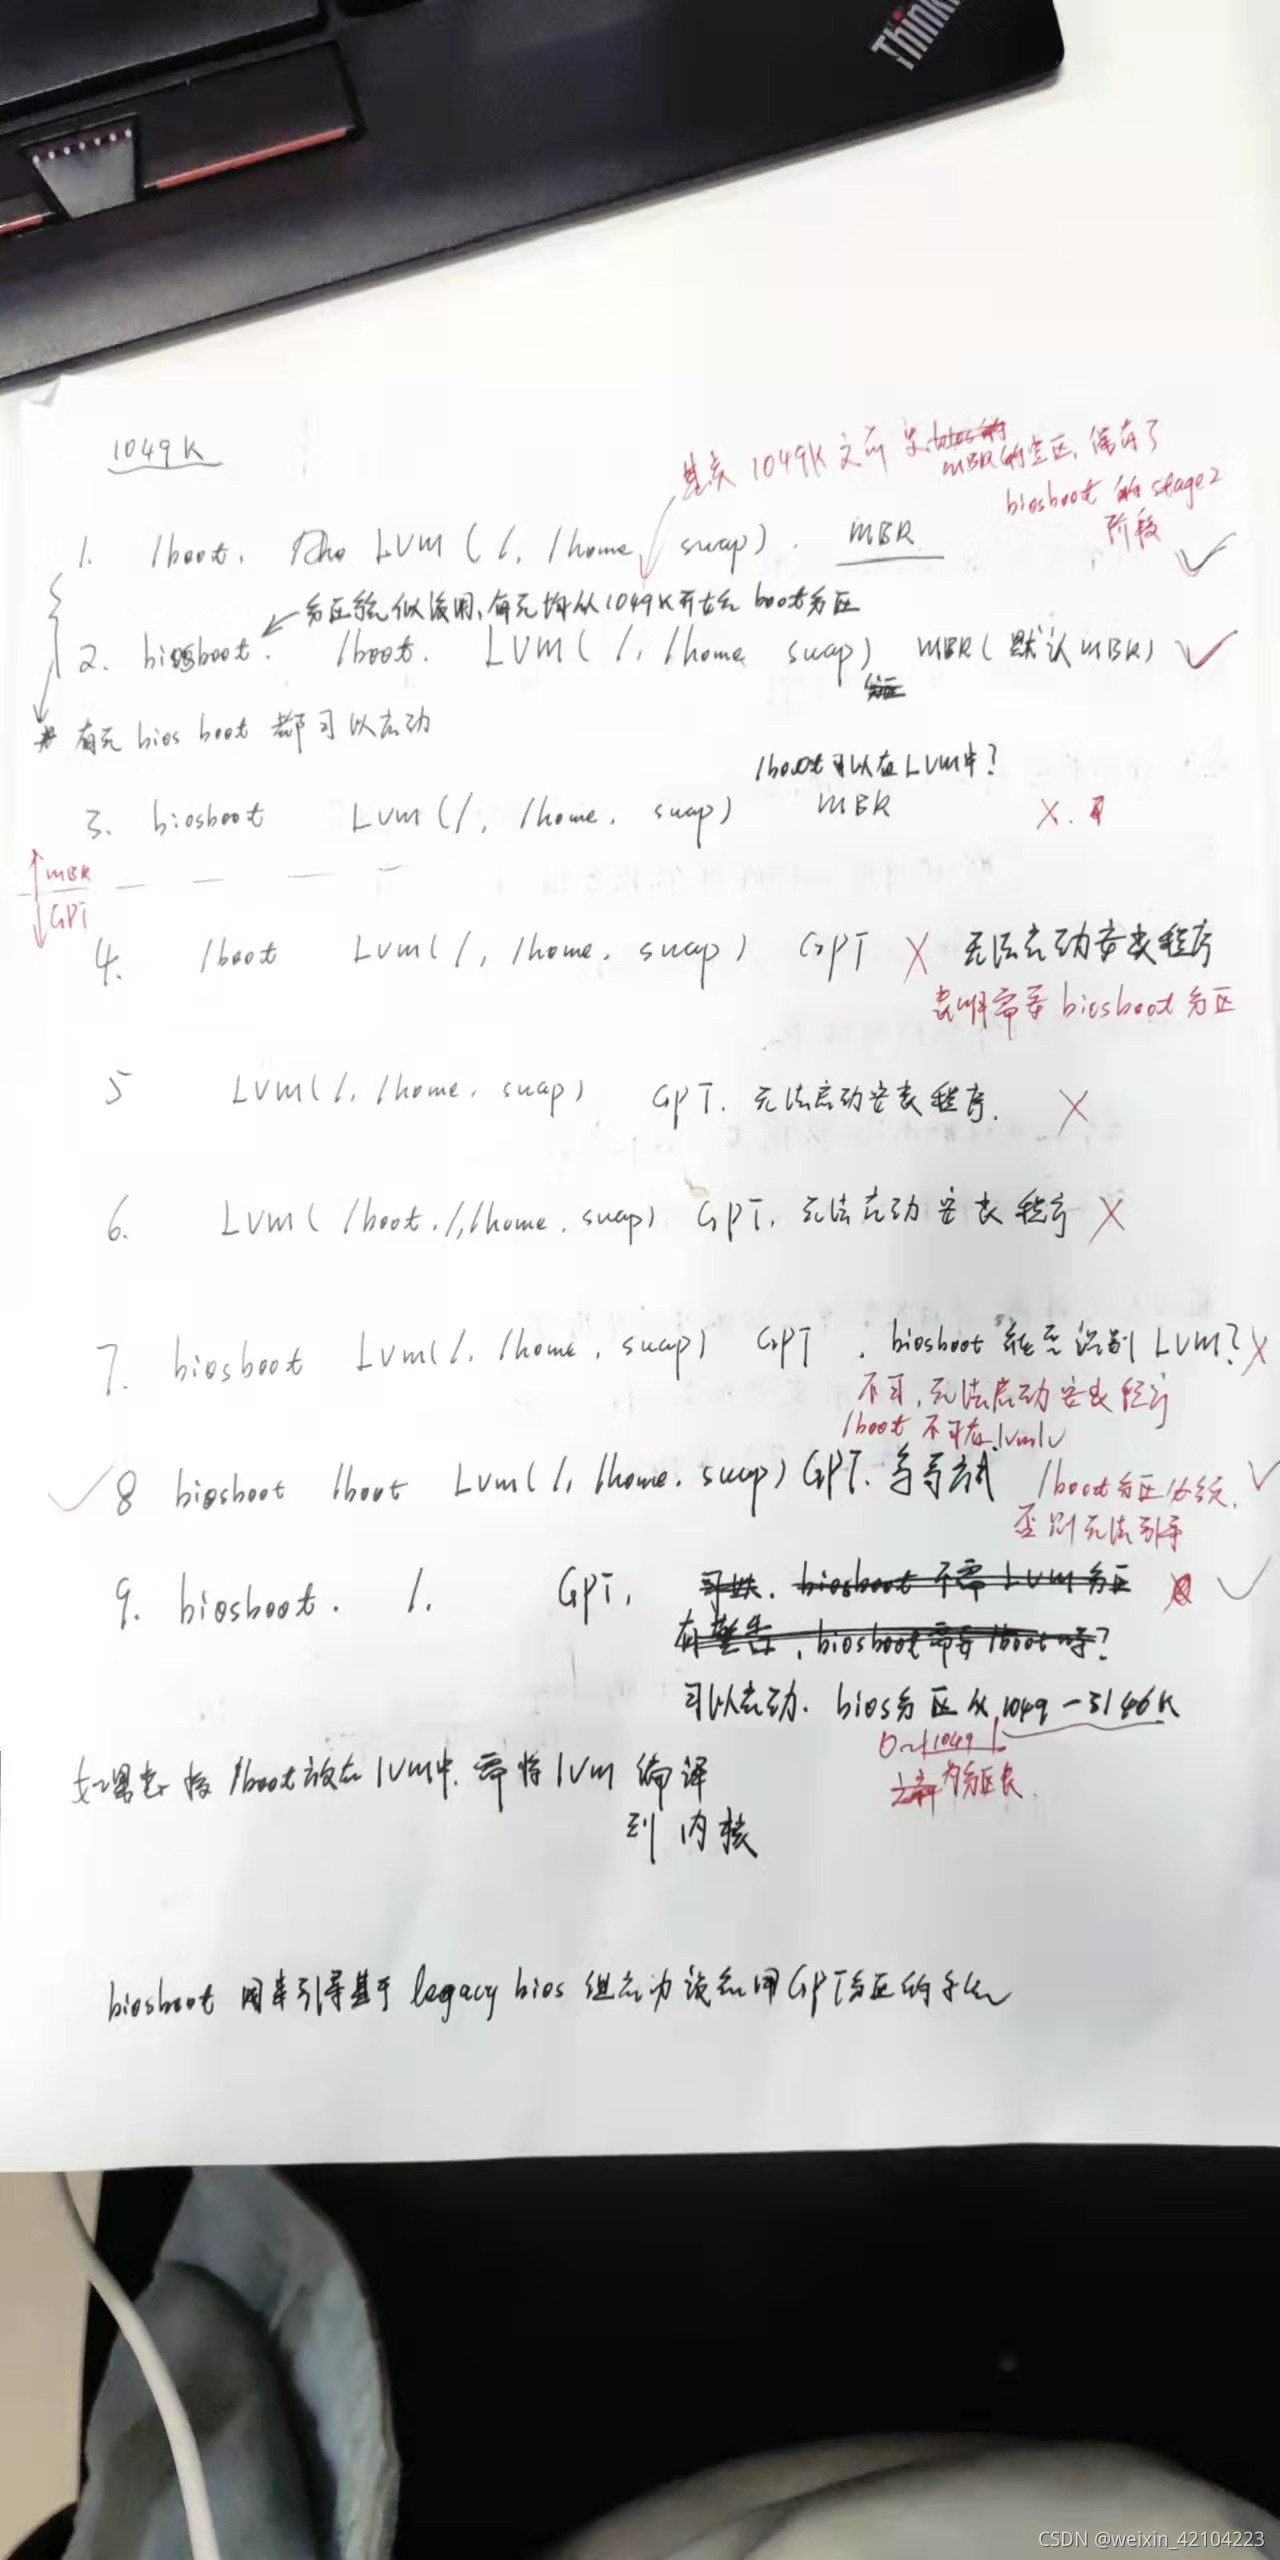 Think
1049K
其实 1049K 之前 是
MBR的空区, 保存了
biosboot 的 stage2
阶段
1. /boot. LVM (/, /home, swap). MBR
无均从1049K开始 boot分区
2. biosboot. /boot. LVM (/, /home swap) MBR (默认MBR)
* 有无 bios boot 都可以启动
/boot可以在LVM中?
3. biosboot LVM (/, /home. swap) MBR X.
↑MBR
↓GPT
4. /boot LVM(/, /home. swap) GPT X 无法启动安装程序
表明需要 biosboot 分区
5 LVM(/, /home. swap) GPT. 无法启动安装程序. X
6. LVM( /boot. /, /home. swap) GPT. 无法启动安装程序 X
7. biosboot LVM(/, /home, swap) GPT . biosboot 能否识别 LVM? X
不可, 无法启动安装程序
/boot 不可在 lvm
8 biosboot /boot LVM(/, /home. swap) GPT.
/boot分区必须.
否则无法引导
9. biosboot. /. GPT, 可以. biosboot 不需 LVM 分区
有警告, biosboot需要 /boot 吗?
可以启动. bios分区从 1049-3146K
0~1049
为分区表.
如果要将 /boot放在 lVM中. 需将 lVM 编译
到 内核
biosboot 用来引导基于 legacy bios 但启动设备用GPT分区的
CSDN @weixin_42104223